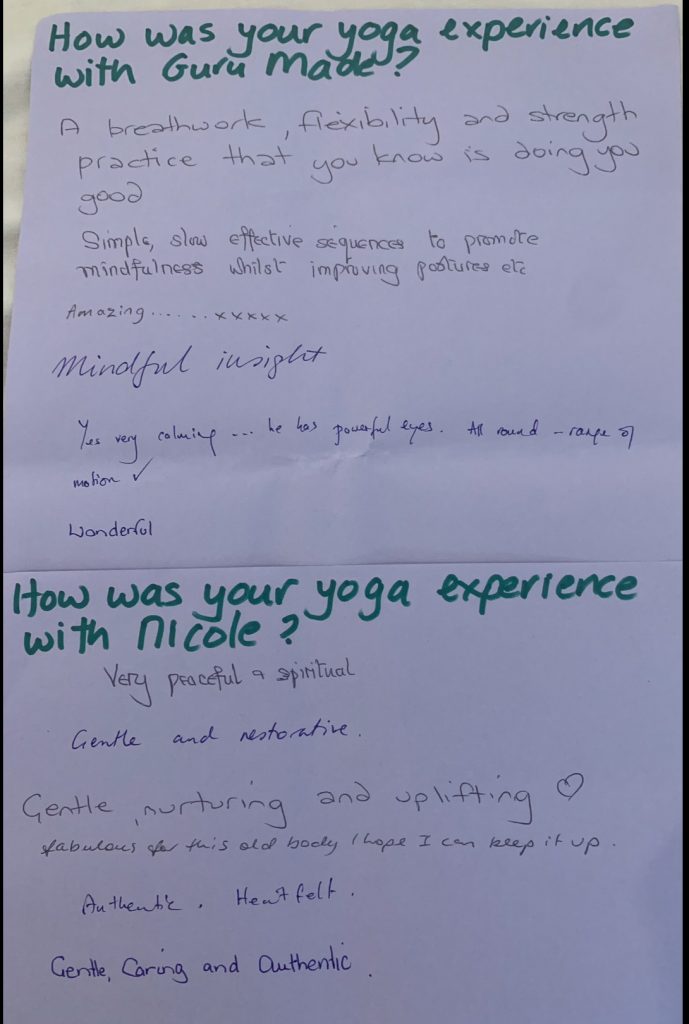 How was your yoga experience
with Guru Made?
A breathwork, flexibility and strength
practice that you know is doing you
good
Simple, slow effective sequences to promote
mindfulness whilst improving postures etc
Amazing......xxxxx
Mindful insight
Yes very calming ... he has powerful eyes. All round - range of
motion ✓
Wonderful
How was your yoga experience
with Nicole?
Very peaceful & spiritual
Gentle and restorative.
Gentle, nurturing and uplifting ♡
fabulous for this old body I hope I can keep it up.
Authentic. Heartfelt.
Gentle, Caring and Authentic.